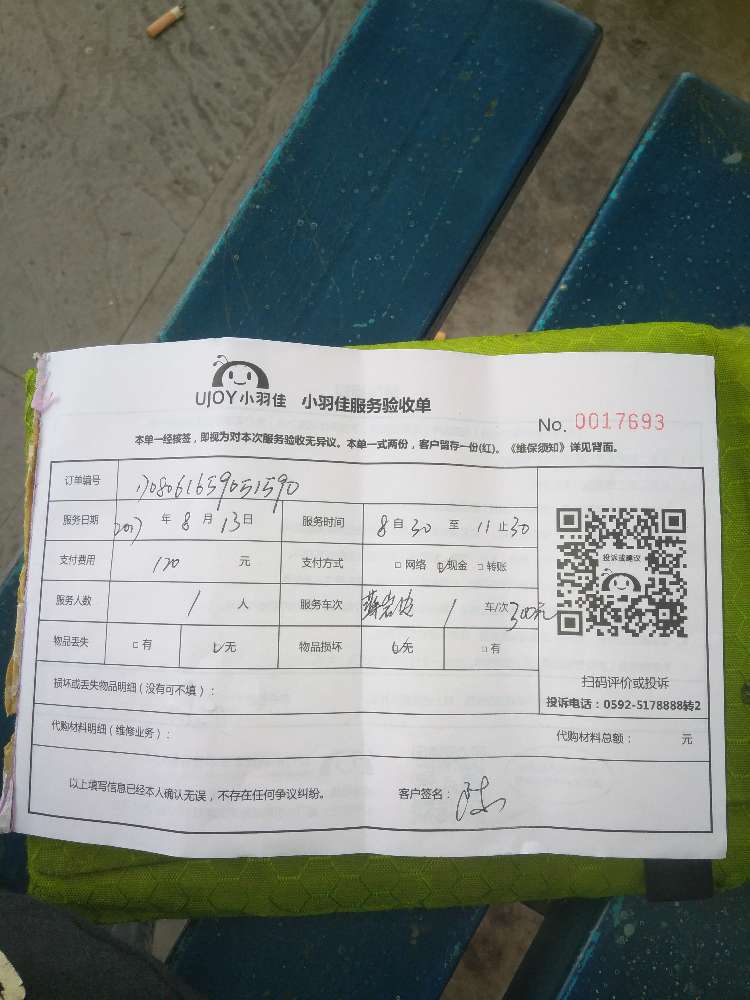 UJOY小羽佳 小羽佳服务验收单
No. 0017693
本单一经核签，即视为对本次服务验收无异议。本单一式两份，客户留存一份(红)。《维保须知》详见背面。
订单编号 1708061659051590
服务日期 2017 年 8 月 13 日 服务时间 8 自 30 至 11 止 30
支付费用 120 元 支付方式 □ 网络 ☑现金 □ 转账
服务人数 1 人 服务车次 1 车/次 300元
物品丢失 □ 有 ☑无 物品损坏 ☑无 □ 有
投诉或建议
扫码评价或投诉
投诉电话：0592-5178888转2
损坏或丢失物品明细（没有可不填）：
代购材料明细（维修业务）： 代购材料总额： 元
以上填写信息已经本人确认无误，不存在任何争议纠纷。 客户签名：